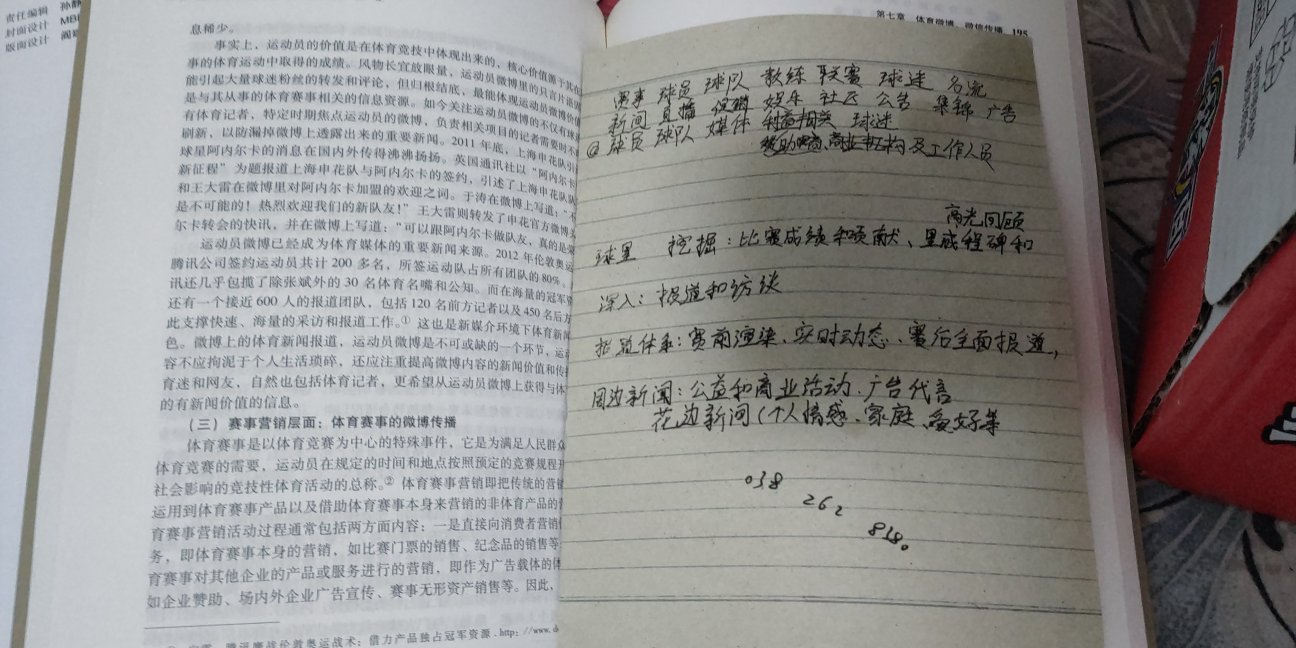 责任编辑 孙静
封面设计 MBI
版面设计 阎
息稀少。
事实上，运动员的价值是在体育竞技中体现出来的，核心价值源于其在
事的体育运动中取得的成绩。风物长宜放眼量，运动员微博里的只言片语
能引起大量球迷粉丝的转发和评论，但归根结底，最能体现运动员微博价值
是与其从事的体育赛事相关的信息资源。如今关注运动员微博的不仅有球迷
有体育记者，特定时期焦点运动员的微博，负责相关项目的记者需要时不
刷新，以防漏掉微博上透露出来的重要新闻。2011 年底，上海申花队引
球星阿内尔卡的消息在国内外传得沸沸扬扬。英国通讯社以“阿内尔卡
新征程”为题报道上海申花队与阿内尔卡的签约，引述了上海申花队队
和王大雷在微博里对阿内尔卡加盟的欢迎之词。于涛在微博上写道：“
是不可能的！热烈欢迎我们的新队友！”王大雷则转发了申花官方微博
尔卡转会的快讯，并在微博上写道：“可以跟阿内尔卡做队友，真的是
运动员微博已经成为体育媒体的重要新闻来源。2012 年伦敦奥运
腾讯公司签约运动员共计 200 多名，所签运动队占所有团队的 80%。
讯还几乎包揽了除张斌外的 30 名体育名嘴和公知。而在海量的冠军资
还有一个接近 600 人的报道团队，包括 120 名前方记者以及 450 名后方
此支撑快速、海量的采访和报道工作。① 这也是新媒介环境下体育新闻
色。微博上的体育新闻报道，运动员微博是不可或缺的一个环节，运动
容不应拘泥于个人生活琐碎，还应注重提高微博内容的新闻价值和传播
育迷和网友，自然也包括体育记者，更希望从运动员微博上获得与体
的有新闻价值的信息。
（三）赛事营销层面：体育赛事的微博传播
体育赛事是以体育竞赛为中心的特殊事件，它是为满足人民群众
体育竞赛的需要，运动员在规定的时间和地点按照预定的竞赛规程开
社会影响的竞技性体育活动的总称。② 体育赛事营销即把传统的营销
运用到体育赛事产品以及借助体育赛事本身来营销的非体育产品的营
育赛事营销活动过程通常包括两方面内容：一是直接向消费者营销
务，即体育赛事本身的营销，如比赛门票的销售、纪念品的销售等
育赛事对其他企业的产品或服务进行的营销，即作为广告载体的体
如企业赞助、场内外企业广告宣传、赛事无形资产销售等。因此，
腾讯鏖战伦敦奥运战术：借力产品独占冠军资源．http：//www.
第七章 体育微博、微信传播 195
赛事 球员 球队 教练 联赛 球迷 名流
新闻 直播 娱乐 社区 公告 集锦 广告
@ 球员 球队 媒体 利益相关 球迷
赞助商、商业机构及工作人员
高光回顾
球星 挖掘：比赛成绩和贡献、里程碑和
深入：报道和访谈
报道体系：赛前渲染、实时动态、赛后全面报道，
周边新闻：公益和商业活动、广告代言
花边新闻（个人情感、家庭、爱好等
038
262
818。